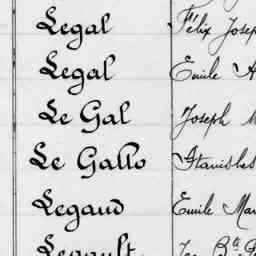 Legal Félix Josep
Legal Emile A
Le Gal Joseph M
Le Gallo Stanislas
Legaud Emile Mar
Legault Jos. Bte